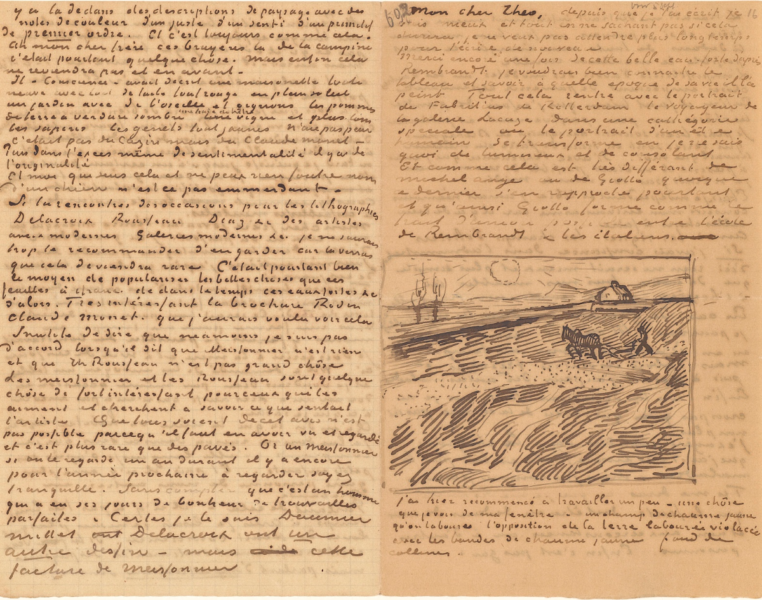 y a là dedans des descriptions de paysage avec des
notes de couleur d'un juste d'un senti d'un primitif
de premier ordre. Et c'est toujours comme cela.
Ah mon cher frère ces bruyères là de la campine
c'était pourtant quelque chose. mais enfin cela
ne reviendra pas et en avant -
Il - Conscience - avait décrit une maisonnette toute
neuve avec toit de tuile tout rouge en plein soleil
un jardin avec de l'oseille et oignons les pommes
de terre à verdure sombre une haie de hêtre une vigne et plus loin
les sapins les genets tout jaunes n'aie pas peur
c'était pas du Cazin mais du Claude monet.
Puis dans l'excès même de sentimentalité il y a de
l'originalité
Et moi qui suis cela et ne peux rien foutre nom
d'un chien n'est ce pas emmerdant.
Si tu rencontres des occasions pour les lithographies
Delacroix Rousseau Diaz &c des artistes
anc. et modernes Galeries modernes &c je ne saurais
trop te recommander d'en garder car tu verras
que cela deviendra rare C'était pourtant bien
le moyen de populariser les belles choses que ces
feuilles à 1 franc de dans le temps ces eaux fortes &c
d'alors. Très intéressant la brochure Rodin
Claude Monet. que j'aurais voulu voir cela
Inutile de dire que néamoins je suis pas
d'accord lorsqu'il dit que Meissonnier n'est rien
et que Th Rousseau n'est pas grand chôse
Les meissonnier et les Rousseau sont quelque
chôse de fort intéressant pour ceux qui les
aiment et cherchent à savoir ce que sentait
l'artiste. Que tous soient de cet avis n'est
pas possible parce qu'il faut en avoir vu et regardé
et c'est plus rare que des pavés. Et un Meissonnier
si on le regarde un an durant il y a encore
pour l'année prochaine à regarder soyez
tranquille. Sans compter que c'est un homme
qui a eu ses jours de bonheur de trouvailles
parfaites. Certes je le sais Daumier
millet ont Delacroix ont un
autre dessin - mais cette
facture de Meissonnier
Mon cher Theo, depuis que je t'ai écrit je
vais mieux et tout en ne sachant pas si cela
durera, je ne veux pas attendre plus longtemps
pour t'écrire de nouveau
Merci encore une fois de cette belle eau forte d'après
Rembrandt, je voudrais bien connaître le
tableau et savoir à quelle époque de sa vie il l'a
peint. Tout cela rentre avec le portrait
de Fabritius de Rotterdam le voyageur de
la galerie Lacaze dans une catégorie
spéciale où le portrait d'un être
humain se transforme en je ne sais
quoi de lumineux et de consolant
Et comme cela est très différent de
michel ange ou de Giotto quoique
ce dernier s'en rapproche pourtant
et qu'ainsi Giotto forme comme le
trait d'union possible entre l'école
de Rembrandt & les italiens.
j'ai hier recommencé à travailler un peu - une chôse
que je vois de ma fenêtre - un champ de chaume jaune
qu'on laboure. l'opposition de la terre labourée violacée
avec les bandes de chaume jaune fond de
collines.